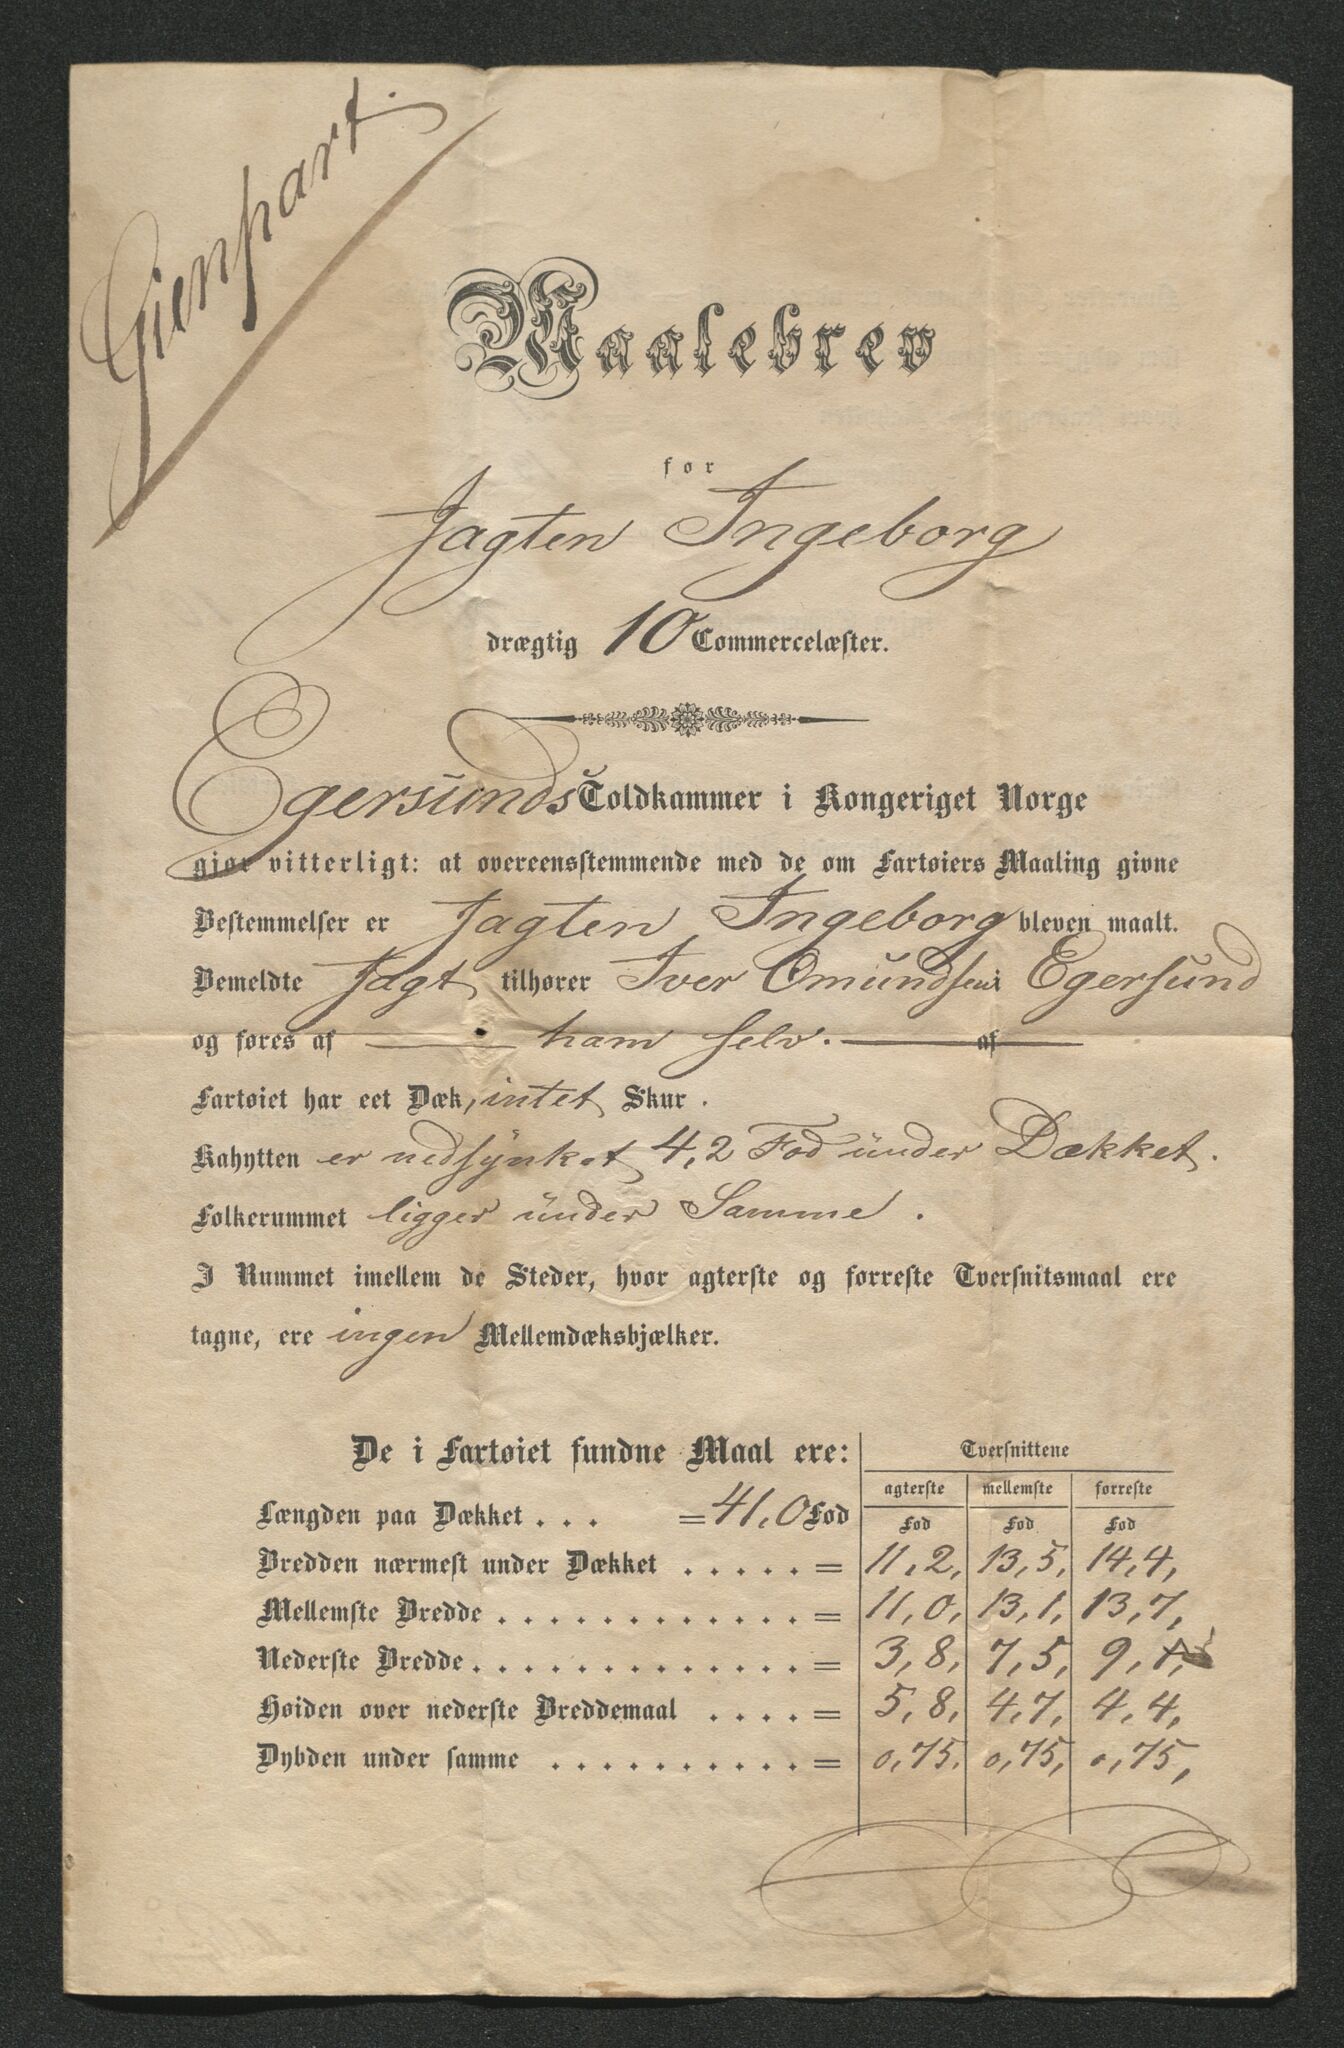 Gienpart.
Maalebrev
for
Jagten Ingeborg
drægtig 10 Commercelæster.
Egersunds Toldkammer i Kongeriget Norge
gjør vitterligt: at overeensstemmende med de om Fartøiers Maaling givne
Bestemmelser er Jagten Ingeborg bleven maalt.
Bemeldte Jagt tilhører Iver Omundsen i Egersund
og føres af — ham selv. — af —
Fartøiet har eet Dæk, intet Skur.
Kahytten er nedsynket 4,2 Fod under Dækket.
Folkerummet ligger under Samme.
I Rummet imellem de Steder, hvor agterste og forreste Tversnitsmaal ere
tagne, ere ingen Mellemdæksbjælker.
De i Fartøiet fundne Maal ere: Tversnittene
agterste mellemste forreste
Længden paa Dækket . . . = 41,0 Fod Fod Fod Fod
Bredden nærmest under Dækket . . . . . = 11,2, 13,5, 14,4,
Mellemste Bredde . . . . . . . . . . . . . = 11,0, 13,1, 13,7,
Nederste Bredde . . . . . . . . . . . . . . = 3,8, 7,5, 9,1,
Høiden over nederste Breddemaal . . . . = 5,8, 4,7, 4,4,
Dybden under samme . . . . . . . . . . . = 0,75, 0,75, 0,75,